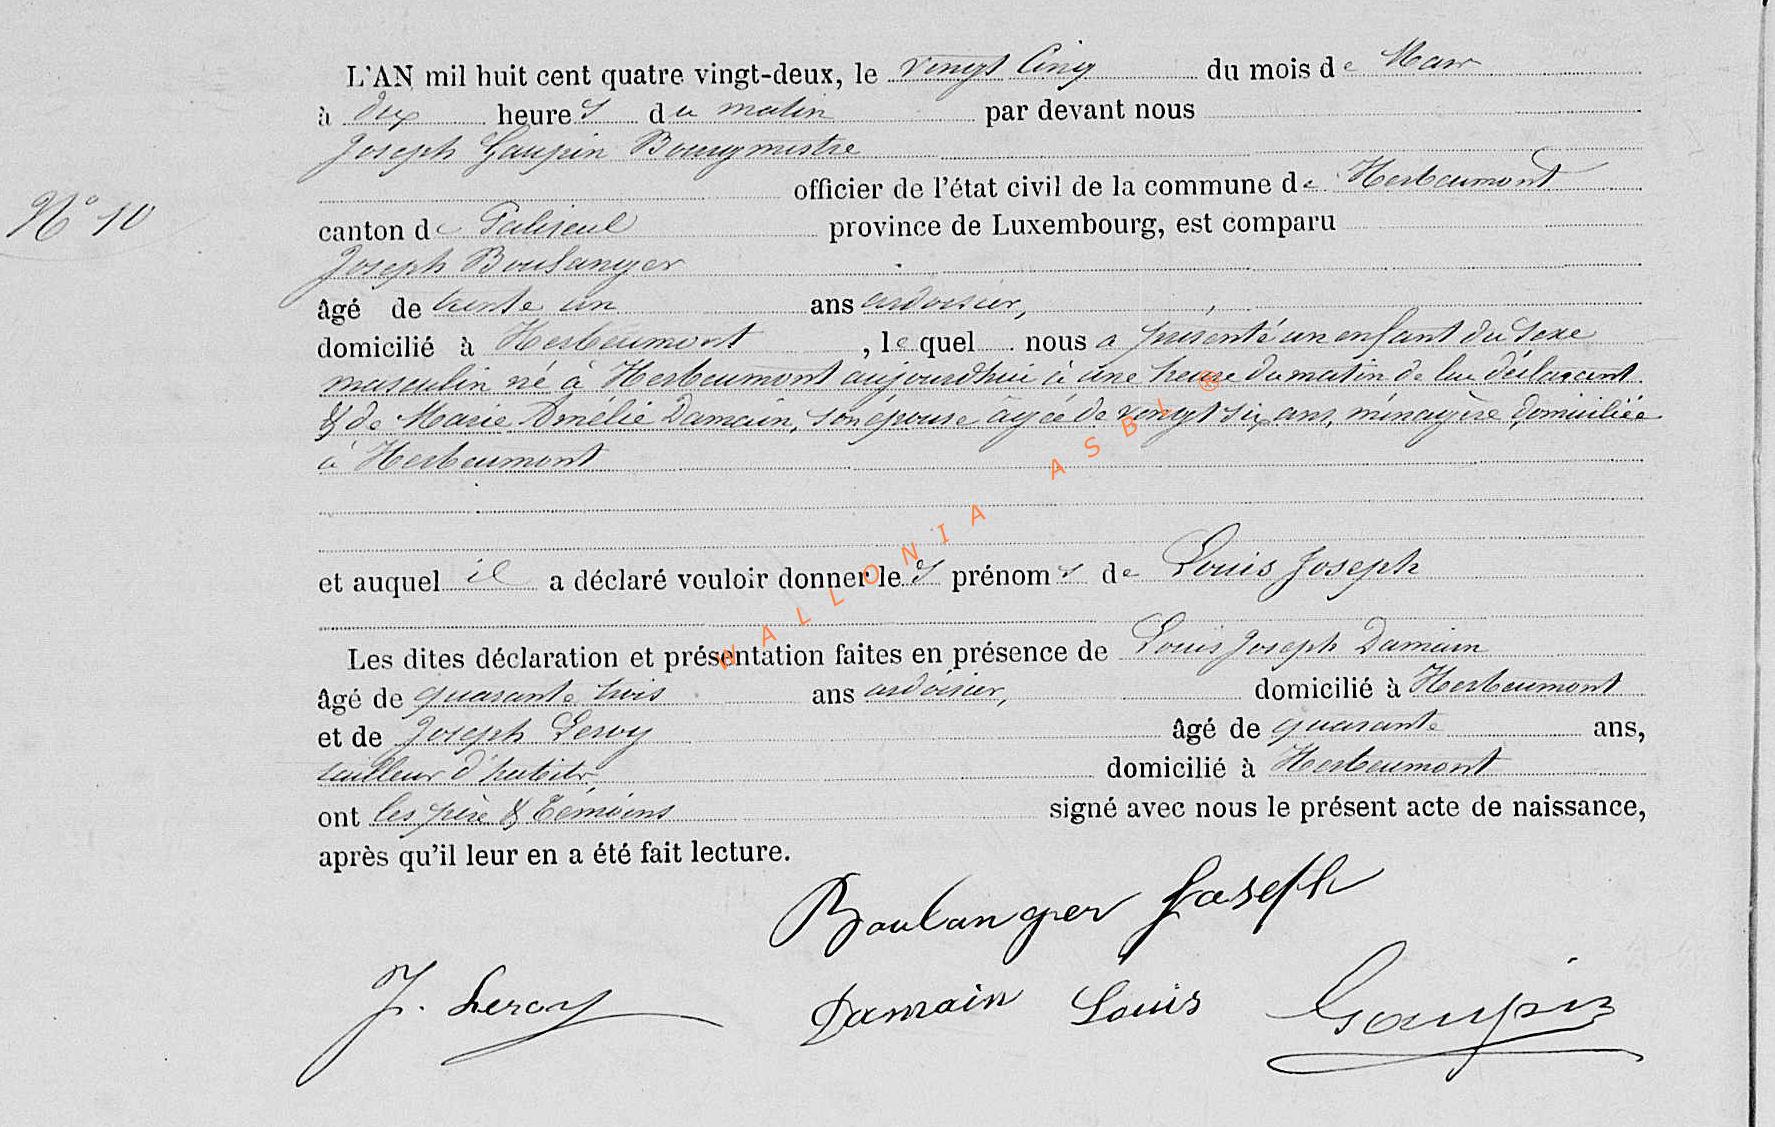 L'AN mil huit cent quatre vingt-deux, le vingt cinq du mois de Mars
à dix heures du matin par devant nous
Joseph Goupin Bourgmestre
officier de l'état civil de la commune de Herbeumont
N° 10
canton de Paliseul province de Luxembourg, est comparu
Joseph Boulanger
âgé de trente un ans ardoisier,
domicilié à Herbeumont, lequel nous a présenté un enfant du sexe
masculin né à Herbeumont aujourdhui à une heure du matin de lui déclarant
& de Marie Amélie Damain, son épouse âgée de vingt six ans, ménagère domiciliée
à Herbeumont
et auquel il a déclaré vouloir donner les prénoms de Louis Joseph
Les dites déclaration et présentation faites en présence de Louis Joseph Damain
âgé de quarante trois ans ardoisier, domicilié à Herbeumont
et de Joseph Leroy âgé de quarante ans,
tailleur d'habits, domicilié à Herbeumont
ont les père & témoins signé avec nous le présent acte de naissance,
après qu'il leur en a été fait lecture.
Boulanger Joseph
J. Leroy Damain Louis Goupin
WALLONIA ASBL ®